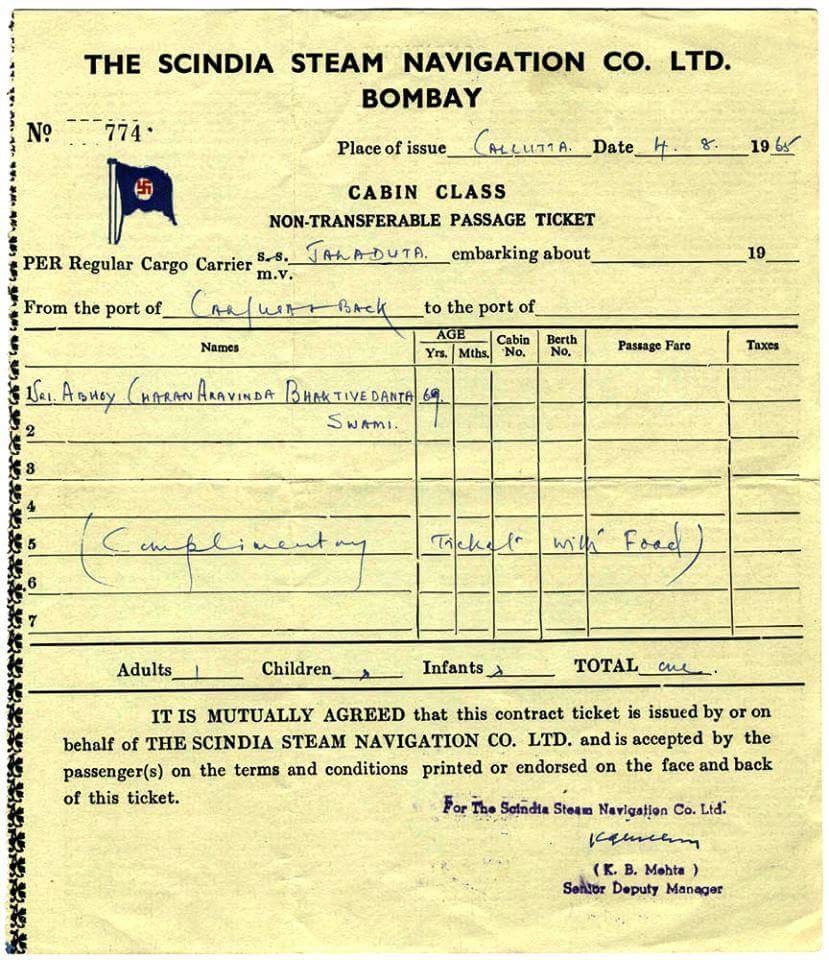 THE SCINDIA STEAM NAVIGATION CO. LTD.
BOMBAY
No 774.
Place of issue CALCUTTA. Date 4. 8. 1965
CABIN CLASS
NON-TRANSFERABLE PASSAGE TICKET
PER Regular Cargo Carrier s.s. m.v. JALADUTA. embarking about 19
From the port of Cal/ Back to the port of
Names AGE Yrs. Mths. Cabin No. Berth No. Passage Fare Taxes
1 SRI. ABHOY CHARAN ARAVINDA BHAKTIVEDANTA 69.
2 SWAMI.
3
4
5 (Complimentary Ticket with Food)
6
7
Adults 1 Children Infants TOTAL one.
IT IS MUTUALLY AGREED that this contract ticket is issued by or on
behalf of THE SCINDIA STEAM NAVIGATION CO. LTD. and is accepted by the
passenger(s) on the terms and conditions printed or endorsed on the face and back
of this ticket.
For The Scindia Steam Navigation Co. Ltd.
(K. B. Mehta)
Senior Deputy Manager